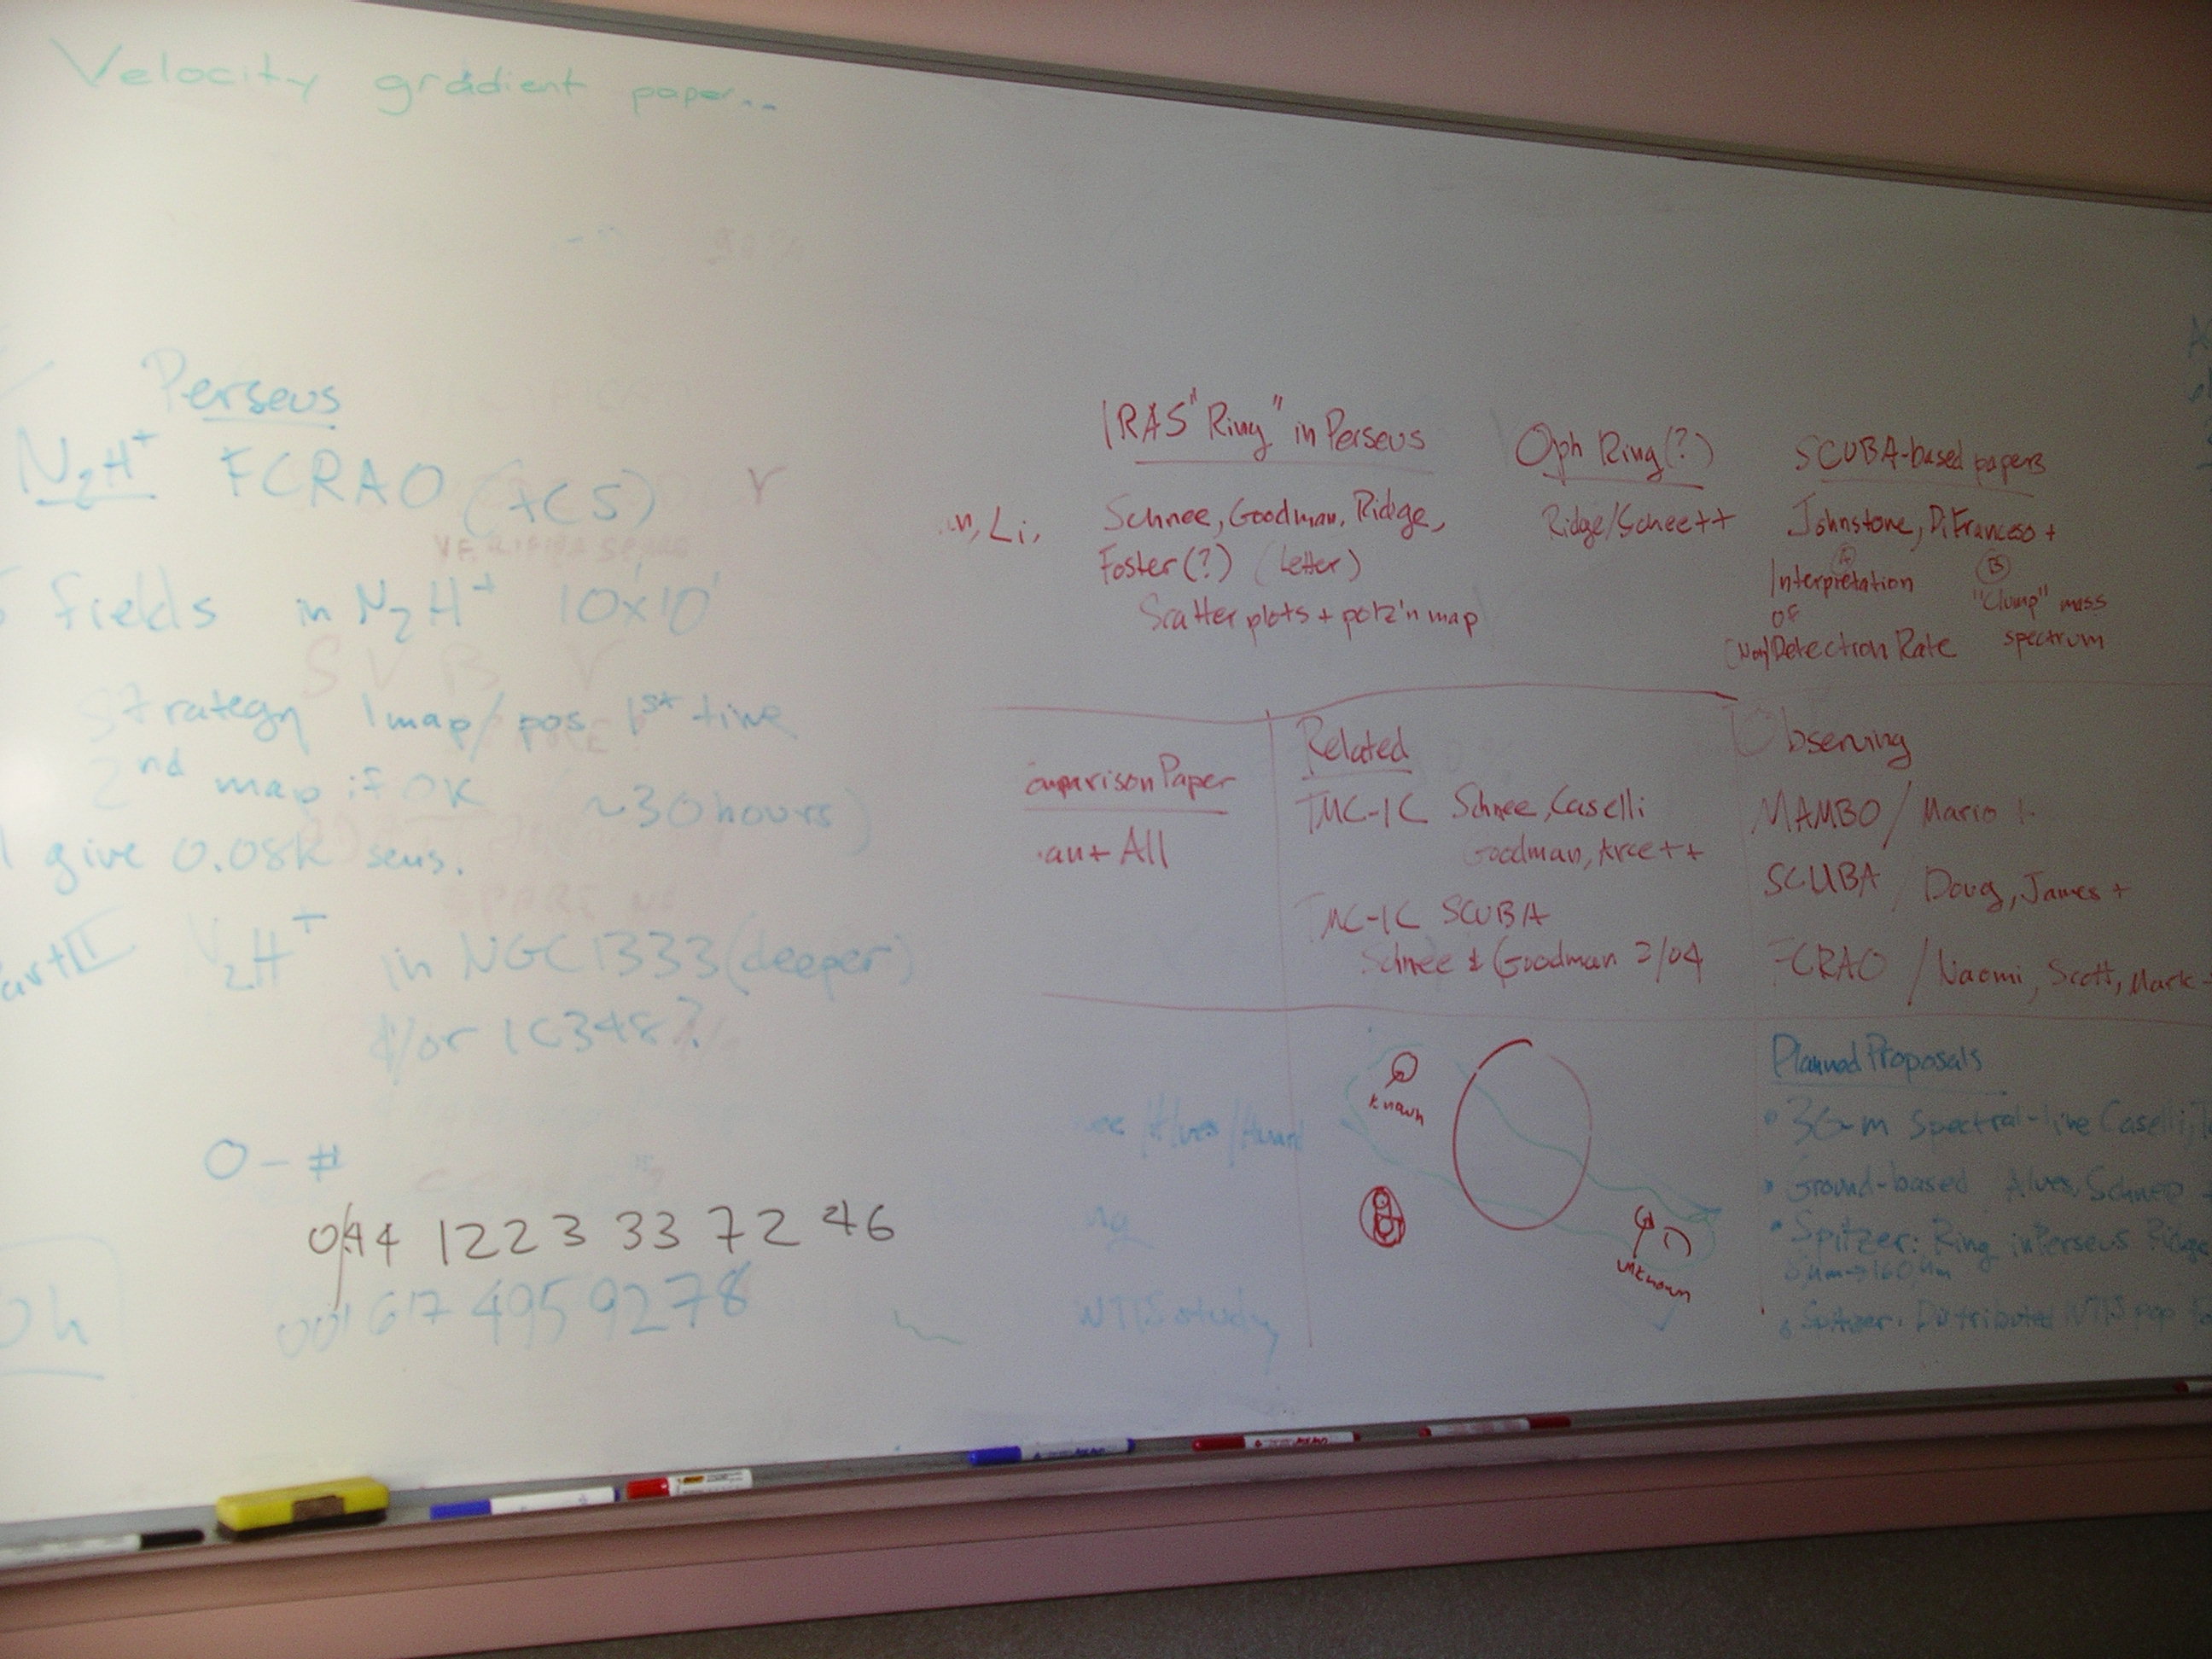 Velocity gradient paper...
Perseus
N2H+ FCRAO (+CS)
fields in N2H+ 10'x10'
Strategy 1 map/pos 1st time
2nd map if OK ~30 hours)
give 0.08K sens.
in NGC1333 (deeper)
&/or IC348?
O - #
044 1223 33 72 46
001 617 495 9278
IRAS "Ring" in Perseus
Li,
Schnee, Goodman, Ridge,
Foster(?) (Letter)
Scatter plots + potz'n map
Oph Ring(?)
Ridge/Schee++
SCUBA-based papers
Johnstone, DiFrancesco +
A
Interpretation
of
(Non)Detection Rate
B
"Clump" mass
spectrum
omparison Paper
+ All
Related
TMC-1C Schnee, Caselli
Goodman, Arce++
TMC-1C SCUBA
Schnee & Goodman 2/04
Observing
MAMBO / Mario
SCUBA / Doug, James +
FCRAO / Naomi, Scott, Mark
known
unknown
study
Planned Proposals
• 30-m Spectral-line Caselli,
• Ground-based Alves, Schnee
• Spitzer: Ring in Perseus Ridge
→160μm
• Spitzer: Distributed pop